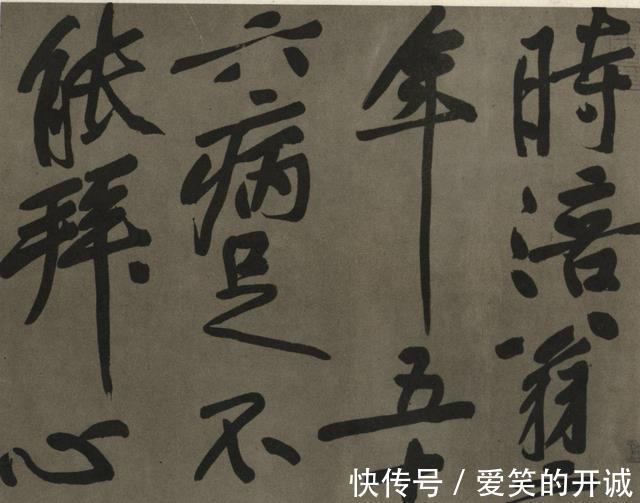 時涪翁
年五十
六病足不
能拜心
快传号 / 爱笑的开诚